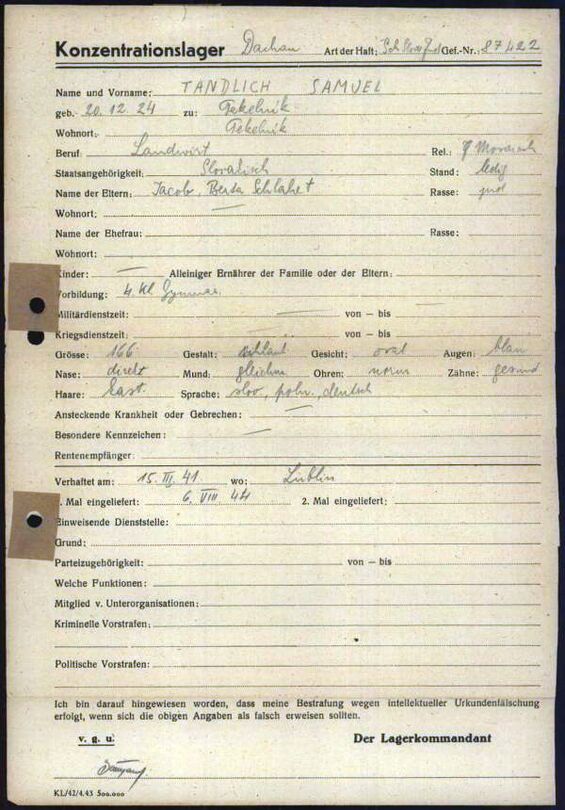 Konzentrationslager Dachau Art der Haft: Gef.-Nr.: 87422
Name und Vorname: TANDLICH SAMUEL
geb. 20.12.24 zu:
Wohnort:
Beruf: Landwirt Rel.:
Staatsangehörigkeit: Slovakisch Stand: ledig
Name der Eltern: Jacob, Berta Rasse: jud
Wohnort: —
Name der Ehefrau: Rasse:
Wohnort:
Kinder: — Alleiniger Ernährer der Familie oder der Eltern:
Vorbildung: 4. Kl
Militärdienstzeit: — von – bis —
Kriegsdienstzeit: von – bis
Grösse: 166 Gestalt: schlank Gesicht: oval Augen: blau
Nase: direkt Mund: gleichm Ohren: norm Zähne: gesund
Haare: kast. Sprache: slov, poln., deutsch
Ansteckende Krankheit oder Gebrechen: —
Besondere Kennzeichen: —
Rentenempfänger:
Verhaftet am: 15. III. 41 wo: Lublin
. Mal eingeliefert: 6. VIII. 44 2. Mal eingeliefert:
Einweisende Dienststelle:
Grund:
Parteizugehörigkeit: von – bis
Welche Funktionen:
Mitglied v. Unterorganisationen:
Kriminelle Vorstrafen:
Politische Vorstrafen:
Ich bin darauf hingewiesen worden, dass meine Bestrafung wegen intellektueller Urkundenfälschung
erfolgt, wenn sich die obigen Angaben als falsch erweisen sollten.
v. g. u. Der Lagerkommandant
KL/42/4.43 500.000